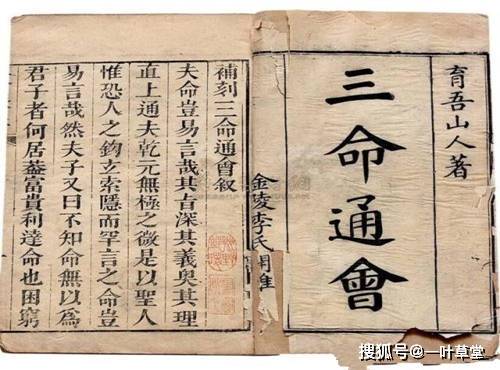 育吾山人著
三命通會
金陵李氏
補刻三命通會叙
夫命豈易言哉其旨深其義奥其理
直上通夫乾元無極之微是以聖人
惟恐人之鈎立索隱而罕言之命豈
易言哉然夫子又曰不知命無以爲
君子者何居葢富貴利達命也困窮
搜狐号@一叶草堂